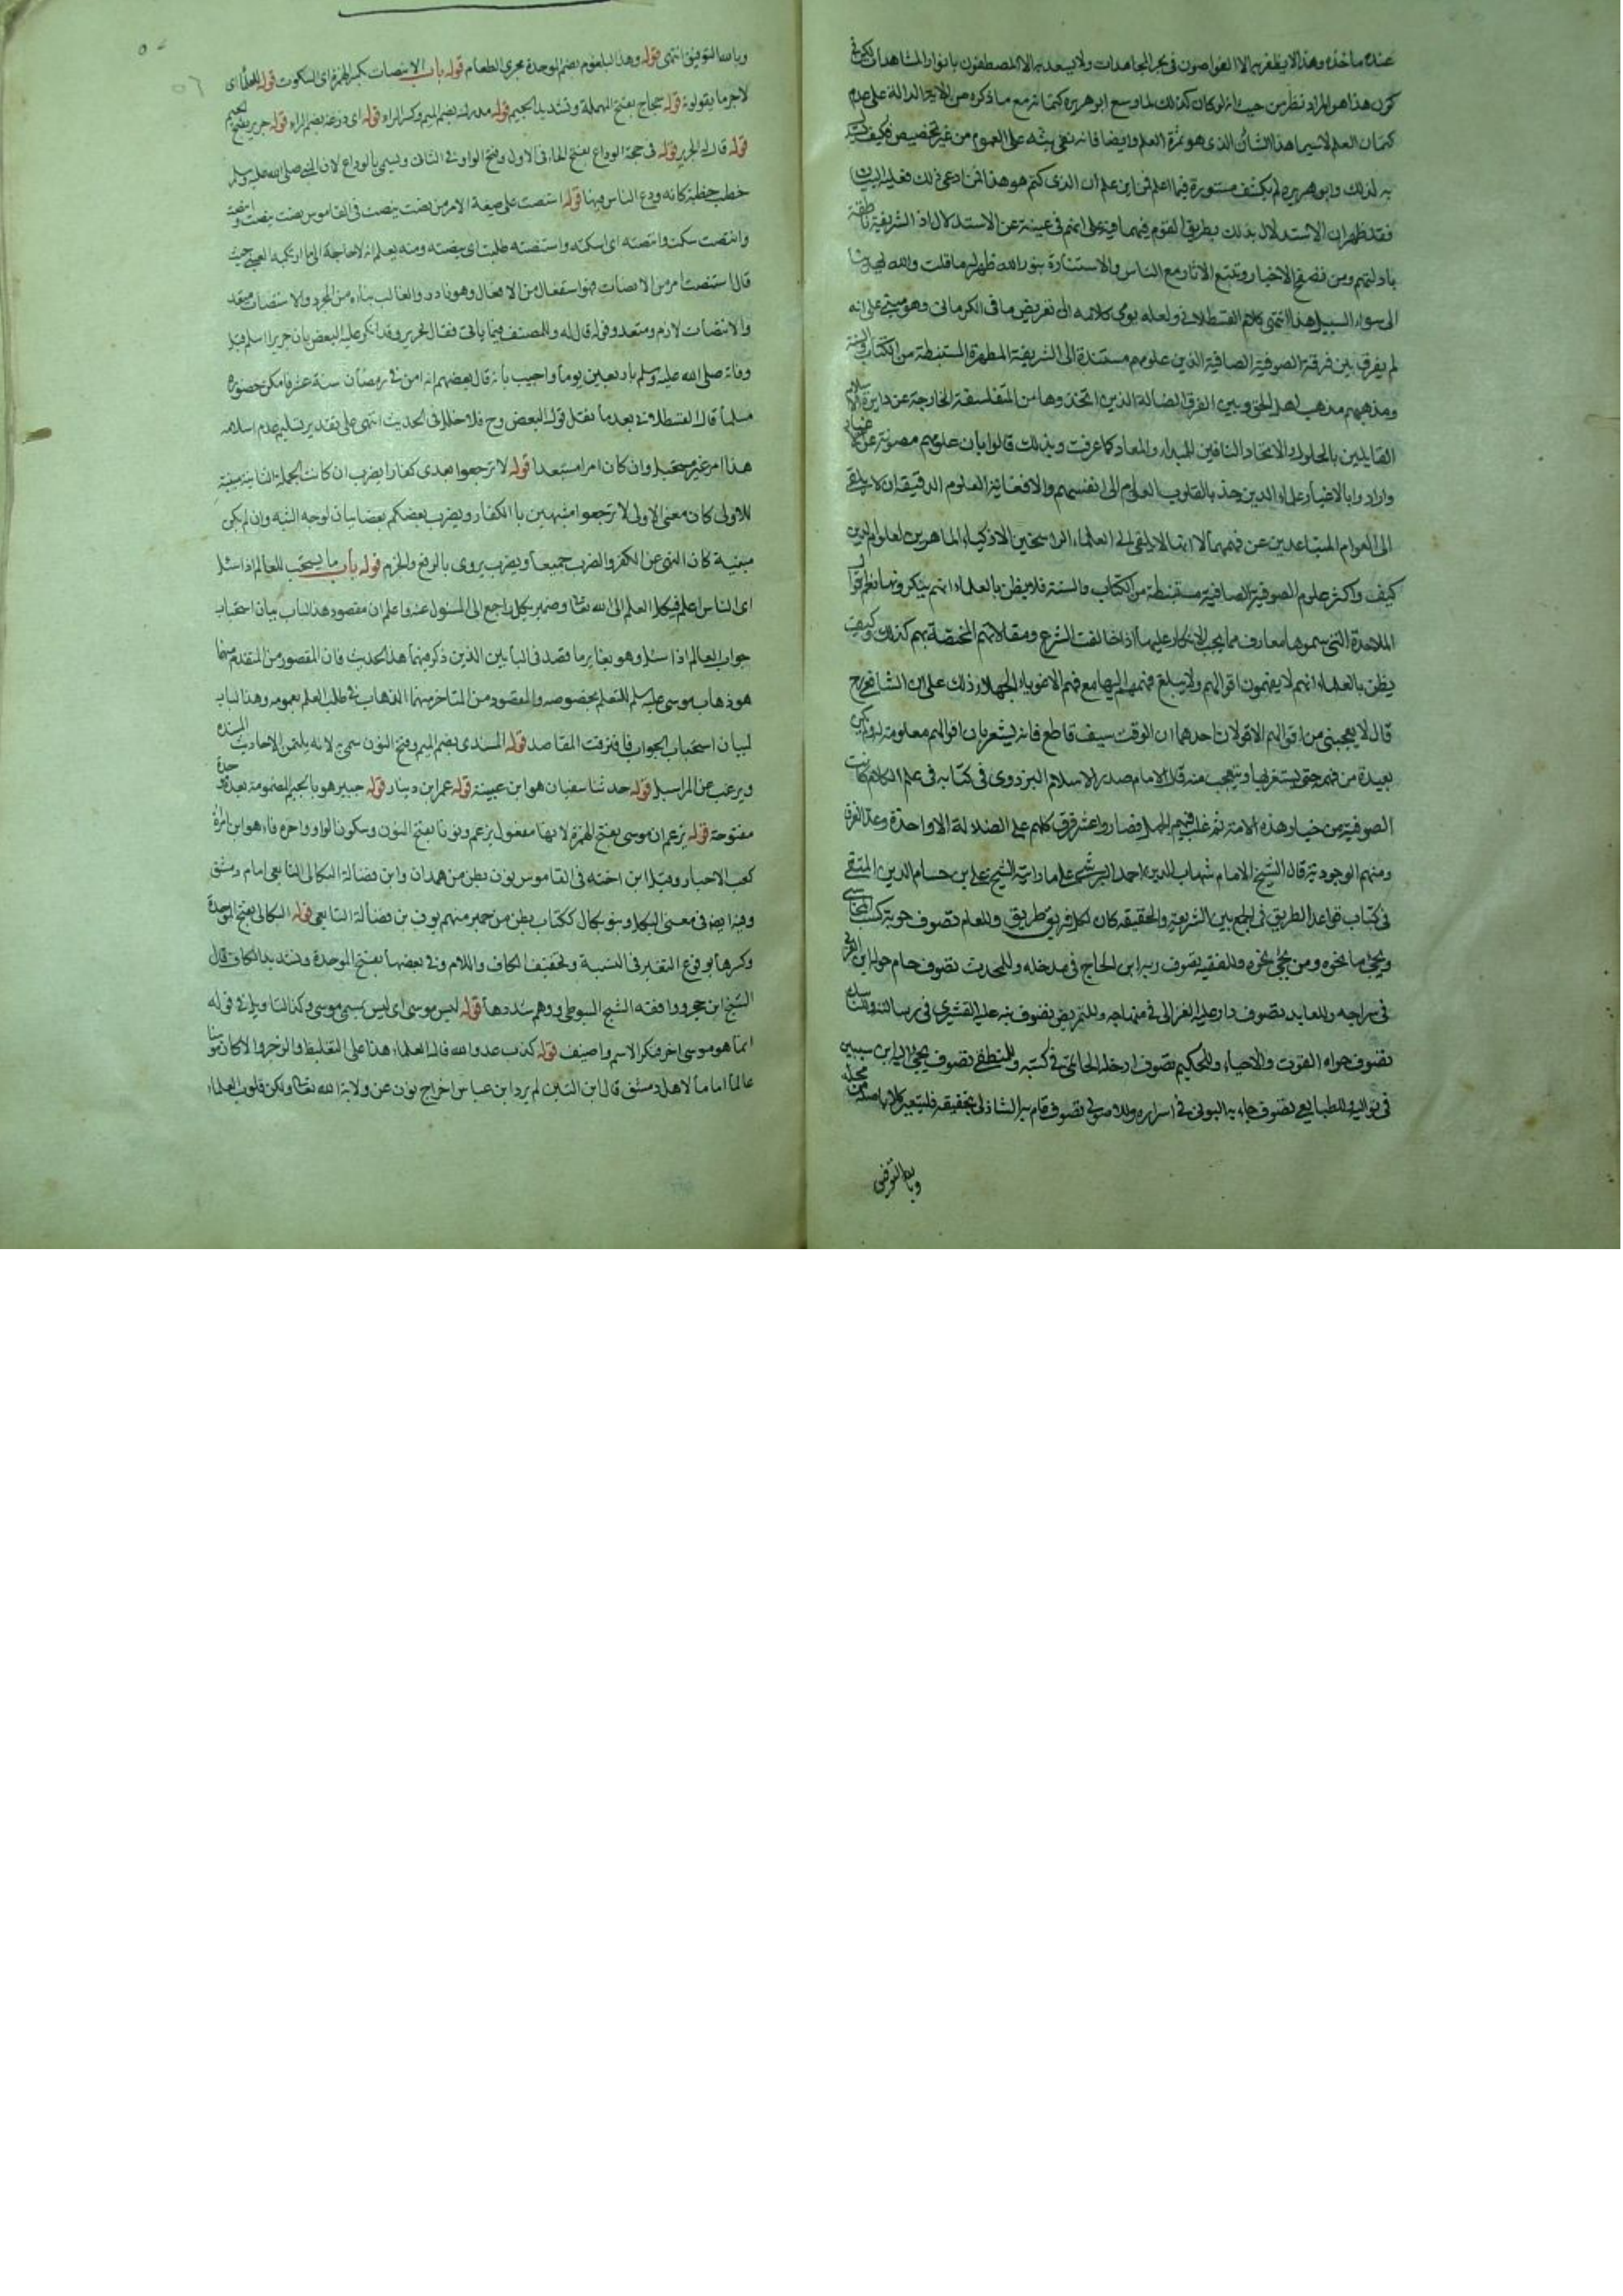 عنده ماخذه وهذا لا يظفر به الا الغواصون في بحر المجاهدات ولا يسعد به الا المصطفون بانوار المشاهدات لكن في
كون هذا هو المراد نظر من حيث انه لو كان كذلك لما وسع ابو هريرة كتمانه مع ما ذكره من الاية الدالة على ذم
كتمان العلم لا سيما هذا الشان الذي هو ثمرة العلم وايضا فانه نفى بثه على العموم من غير تخصيص فكيف يستدل
به لذلك وابو هريرة لم يكشف مستوره فيما اعلم فمن اين علم ان الذي كتمه هو هذا فمن ادعى ذلك فعليه البيان
فقد ظهر ان الاستدلال بذلك بطريق القوم فيه ما فيه على انهم في غنية عن الاستدلال اذ الشريعة ناطقة
بادلتهم ومن تصفح الاخبار وتتبع الاثار مع التاسي والاستنارة بنور الله ظهر له ما قلت والله يهدينا
الى سواء السبيل هذا انتهى كلام القسطلاني ولعله يومي كلامه الى تعريض ما في الكرماني وهو مبني على انه
لم يفرق بين فرقة الصوفية الصافية الذين علومهم مستندة الى الشريعة المطهرة المستنبطة من الكتاب والسنة
ومذهبهم مذهب اهل الحق وبين الفرق الضالة الذين اتخذوها من المتفلسفة الخارجة عن دايرة الاسلام
القايلين بالحلول والاتحاد النافين للمبدا والمعاد كما عرفت وبذلك قالوا بان علومهم مصونة عن الاغيار
وارادوا بالاغيار علماء الدين جذبا لقلوب العوام الى انفسهم والا فغاية العلوم الدقيقة ان لا يلقى
الى العوام المتباعدين عن فهمها لا انها لا يلقى الى العلماء الراسخين الاذكياء الماهرين لعلوم الدين
كيف واكثر علوم الصوفية الصافية مستنبطة من الكتاب والسنة فلا يظن بالعلماء انهم ينكرونها نعم اقوال
الملاحدة التي سموها معارف مما يجب الانكار عليها اذا خالفت الشرع ومقالاتهم المختصة بهم كذلك وكيف
يظن بالعلماء انهم لا يفهمون اقوالهم ولا يبلغ فهمهم اليها مع فهم الاغوياء الجهلاء ذلك على ان الشافعي رح
قال لا يعجبني من اقوالهم الا قولان احدهما ان الوقت سيف قاطع فانه يشعر بان اقوالهم معلومة له ولم يكن
بعيدة من فهمه حتى يستغربها ويتعجب منه قال الامام صدر الاسلام البزدوي في كتابه في علم الكلام كانت
الصوفية من خيار هذه الامة ثم غلب فيهم الجهل فصاروا عشر فرق كلهم على الضلالة الا واحدة وعد الفرق
ومنهم الوجودية قال الشيخ الامام شهاب الدين احمد البرنسي على ما رايته الشيخ علي بن حسام الدين المتقي
في كتاب قواعد الطريق في الجمع بين الشريعة والحقيقة كان لكل فريق طريق وللعام تصوف حوته كتب المحاسبي
وما نحا نحوه ومن نحى نحوه وللفقيه تصوف رسمه ابن الحاج في مدخله وللمحدث تصوف حام حوله ابن العربي
في سراجه وللعابد تصوف دار عليه الغزالي في منهاجه وللمتريض تصوف نبه عليه القشيري في رسالته وللناسك
تصوف حواه القوت والاحياء وللحكيم تصوف ادخله الحاتمي في كتبه وللمنطقي تصوف نحى اليه ابن سبعين
في تواليفه وللطبايعي تصوف جاء به البوني في اسراره وللاصولي تصوف قام به الشاذلي بتحقيقه فليعتبر كل باصله من محله
وبالله التوفيق
وبالله التوفيق انتهى قوله وهذا البلعوم بضم الموحدة مجرى الطعام قوله باب الانصات بكسر الهمزة اي السكوت قوله للعلماء اي
لاجل ما يقولونه قوله حجاج بفتح المهملة وتشديد الجيم قوله مدرك بضم الميم وكسر الراء قوله ابي زرعة بضم الزاء قوله جرير بفتح الجيم
قوله قال له الجرير قوله في حجة الوداع بفتح الحاء في الاول وفتح الواو في الثاني ويسمى بالوداع لان النبي صلى الله عليه وسلم
خطب خطبة كانه ودع الناس فيها قوله استنصت على صيغة الامر من نصت ينصت في القاموس نصت ينصت وانصت
وانتصت سكت وانصته اي اسكته واستنصته طلب اي ينصته ومنه يعلم انه لا حاجة الى ما ارتكبه العيني حيث
قال استنصت امر من الانصات فهو استفعال من الافعال وهو نادر والغالب بناءه من المجرد والاستنصات متعد
والانصات لازم ومتعد وقوله قال له وللمصنف فيما ياتي فقال لجرير وقد انكر عليه البعض بان جريرا اسلم قبل
وفاته صلى الله عليه وسلم باربعين يوما واجيب بانه قال بعضهم انه امن في رمضان سنة عشر فامكن حضوره
مسلما قال القسطلاني بعد ما نقل قول البعض وح فلا خلل في الحديث انتهى على تقدير تسليم عدم اسلامه
هذا امر غير مستحيل وان كان امرا مستبعدا قوله لا ترجعوا بعدي كفارا يضرب ان كانت الجملة الثانية مبينة
للاولى كان معنى الاولى لا ترجعوا متشبهين بالكفار ويضرب بعضكم بعضا بيان لوجه الشبه وان لم يكن
مبنية كان النهي عن الكفر والضرب جميعا ويضرب يروى بالرفع والجزم قوله باب ما يستحب للعالم اذا سئل
اي الناس اعلم فيكل العلم الى الله تعالى وضمير يكل راجع الى المسئول عنه واعلم ان مقصود هذا الباب بيان استحباب
جواب العالم اذا سئل وهو يغاير ما قصد في البابين الذين ذكر فيهما هذا الحديث فان المقصود من المتقدم منهما
هو ذهاب موسى عليه السلم للتعلم بخصوصه والمقصود من المتاخر منهما الذهاب في طلب العلم بعمومه وهذا الباب
لبيان استحباب الجواب فافترقت المقاصد قوله المسندي بضم الميم وفتح النون سمي به لانه يلتمس الاحاديث المسندة
ويرغب عن المراسيل قوله حدثنا سفيان هو ابن عيينة قوله عمرو ابن دينار قوله جبير هو بالجيم المضمومة بعده موحدة
مفتوحة قوله يزعم ان موسى بفتح الهمزة لانها مفعول يزعم ونوفا بفتح النون وسكون الواو واخره فاء هو ابن امراة
كعب الاحبار وقيل ابن اخته في القاموس نوف بطن من همدان وابن فضالة البكالي التابعي امام دمشق
وفيه ايضا في معنى البكل وبنو بكال ككتاب بطن من حمير منهم نوف بن فضالة التابعي قوله البكالي بفتح الموحدة
وكسرها بوقوع التغير في النسبة وتخفيف الكاف واللام وفي بعضها بفتح الموحدة وتشديد الكاف قال
الشيخ ابن حجر ووافقه الشيخ السيوطي ووهم من شددها قوله ليس موسى اي ليس يسمى موسى وكذا التاويل في قوله
انما هو موسى اخر فنكر الاسم واضيف قوله كذب عدو الله قال العلماء هذا على التغليظ والزجر والا كان مؤمنا
عالما اماما لاهل دمشق قال ابن التين لم يرد ابن عباس اخراج نوف عن ولاية الله تعالى ولكن قلوب العلماء